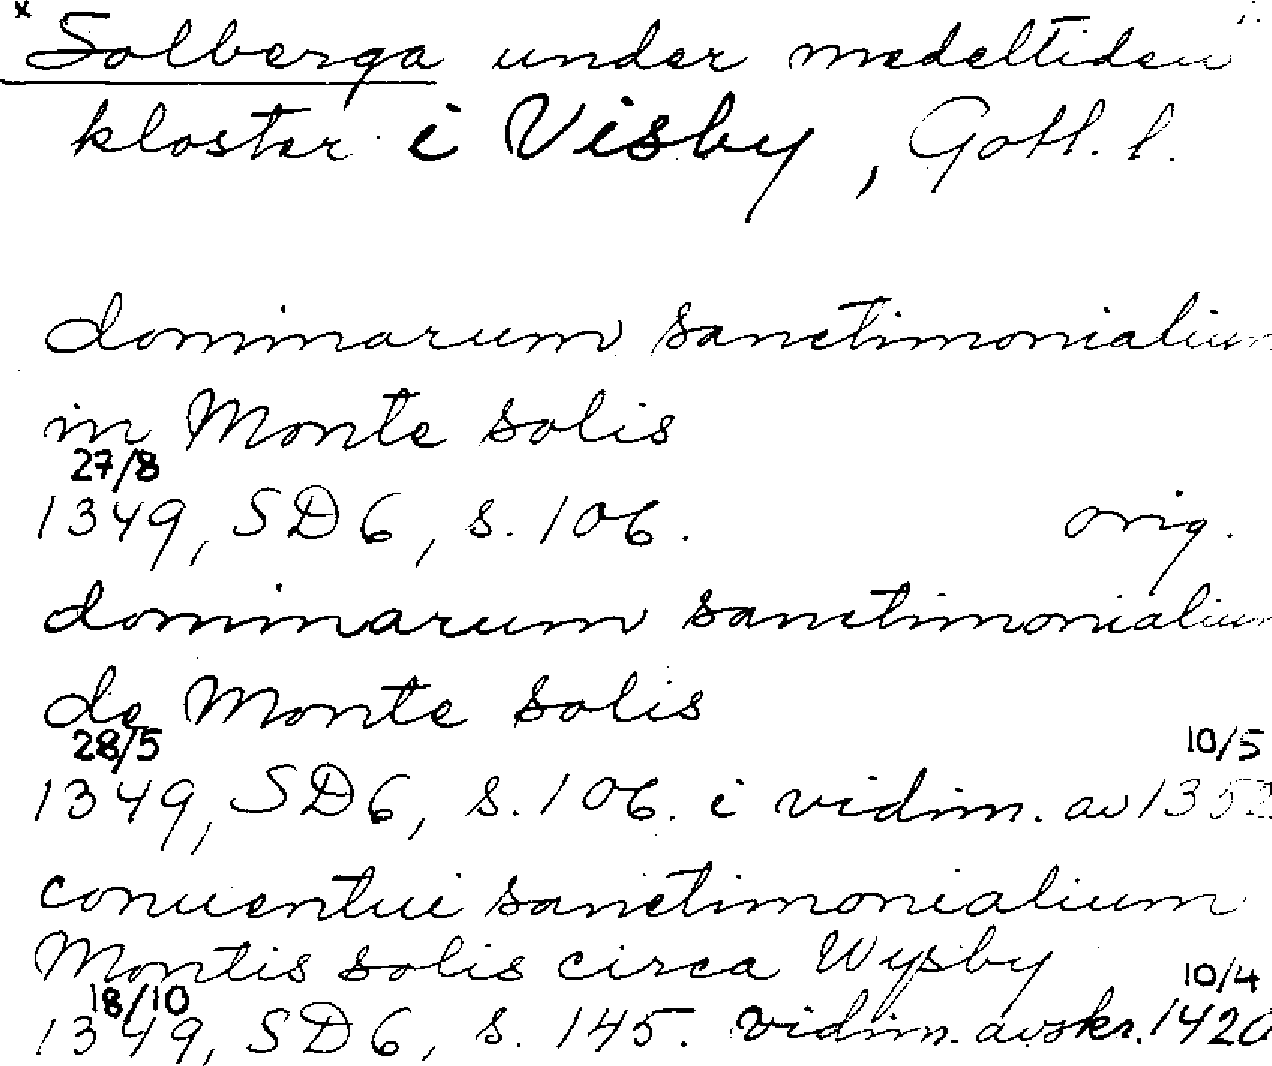 x Solberga under medeltiden
kloster i Visby, Gotl. l.
dominarum sanctimonialium
in Monte solis
27/8
1349, SD 6, s. 106. orig.
dominarum sanctimonialium
de Monte solis
28/5 10/5
1349, SD 6, s. 106. i vidim. av
conuentui sanctimonialium
Montis solis circa Wysby
18/10 10/4
1349, SD 6, s. 145. vidim. avskr. 1420